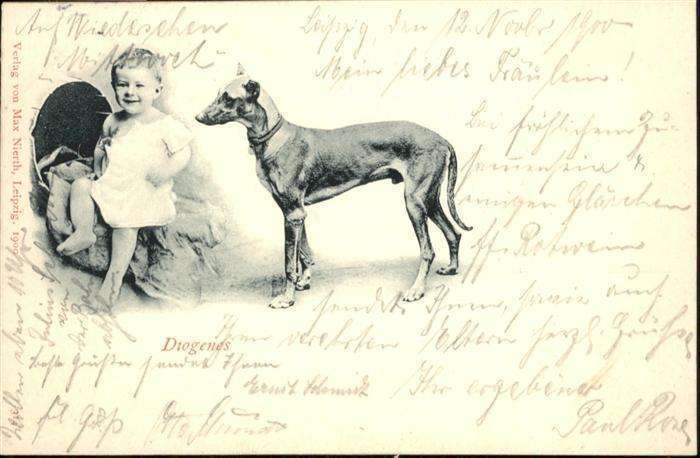 Auf Wiedersehen
„Mittwoch“
Leipzig, den 12. Novbr 1900
Mein liebes Fräulein!
Bei fröhlichem Zu-
sammensein &
einigen Gläschen
ff. Rotwein
sendet Ihnen, sowie auch
Ihren verehrten Eltern herzl. Grüße
Ihr ergebener
Paul
Diogenes
beste Grüße sendet Ihnen
Ernst Schmidt
fl. Gruß
Verlag von Max Nierth, Leipzig.